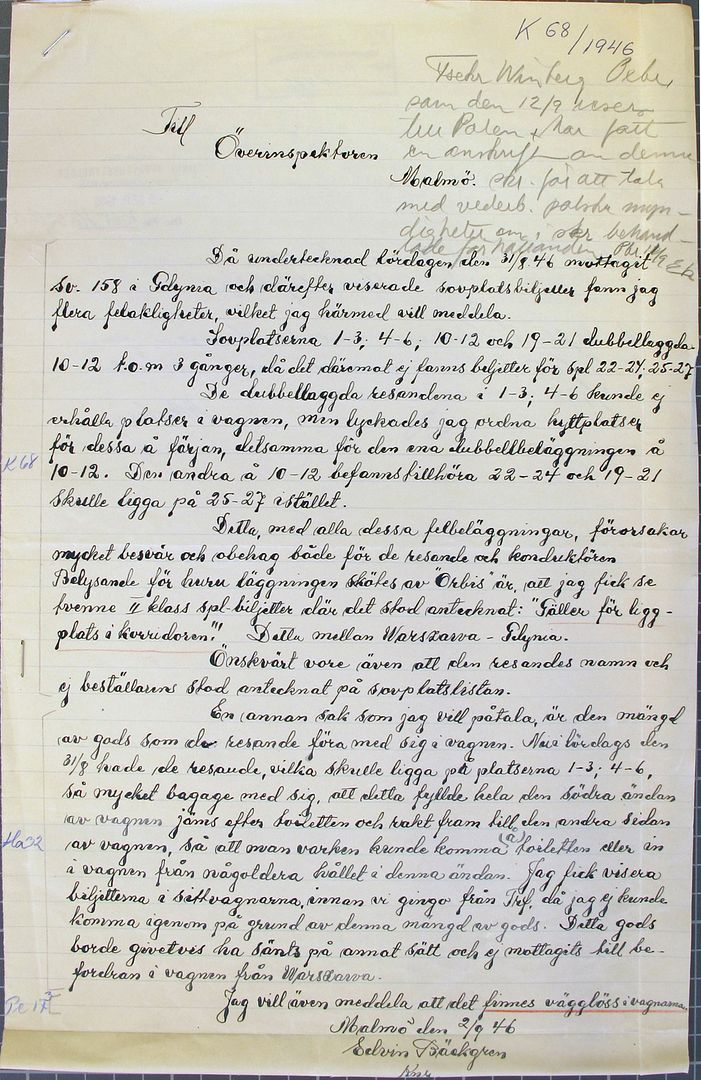 K 68/1946
Winberg
som den 12/9 reser
till Polen + har fått
en avskrift av denna
skr. för att tala
med vederb. polska myn-
digheter om i skr behand-
lade förhållanden
Till
Överinspektoren
Malmö.
Då undertecknad lördagen den 31/8 46 mottagit
sv. 158 i Gdynia och därefter viserade sovplatsbiljetter fann jag
flera felaktigheter, vilket jag härmed vill meddela.
Sovplatserna 1-3; 4-6; 10-12 och 19-21 dubbellaggda.
10-12 t.o.m 3 gånger, då det däremot ej fanns biljetter för spl 22-24; 25-27
De dubbellaggda resandena i 1-3; 4-6 kunde ej
erhålla platser i vagnen, men lyckades jag ordna hyttplatser
för dessa å färjan, detsamma för den ena dubbellbeläggningen å
K 68
10-12. Den andra å 10-12 befanns tillhöra 22-24 och 19-21
skulle ligga på 25-27 istället.
Detta, med alla dessa felbeläggningar, förorsakar
mycket besvär och obehag både för de resande och konduktören
Belysande för huru läggningen skötes av "Orbis" är, att jag fick se
tvenne II klass spl-biljetter där det stod antecknat: "Gäller för ligg-
plats i korridoren." Detta mellan Warszawa - Gdynia.
Önskvärt vore även att den resandes namn och
ej beställarens stod antecknat på sovplatslistan.
En annan sak som jag vill påtala, är den mängd
av gods som de resande föra med sig i vagnen. Nu i lördags den
31/8 hade de resande, vilka skulle ligga på platserna 1-3; 4-6,
så mycket bagage med sig, att detta fyllde hela den södra ändan
av vagnen jäms efter toiletten och rakt fram till den andra sidan
Ha 32
av vagnen, så att man varken kunde komma på toiletten eller in
i vagnen från någoldera hållet i denna ändan. Jag fick visera
biljetterna i sittvagnarna, innan vi gingo från Trf, då jag ej kunde
komma igenom på grund av denna mängd av gods. Detta gods
borde givetvis ha sänts på annat sätt och ej mottagits till be-
fordran i vagnen från Warszawa.
Jag vill även meddela att det finnes vägglöss i vagnarna.
Malmö den 2/9 46
Edvin Bäckgren